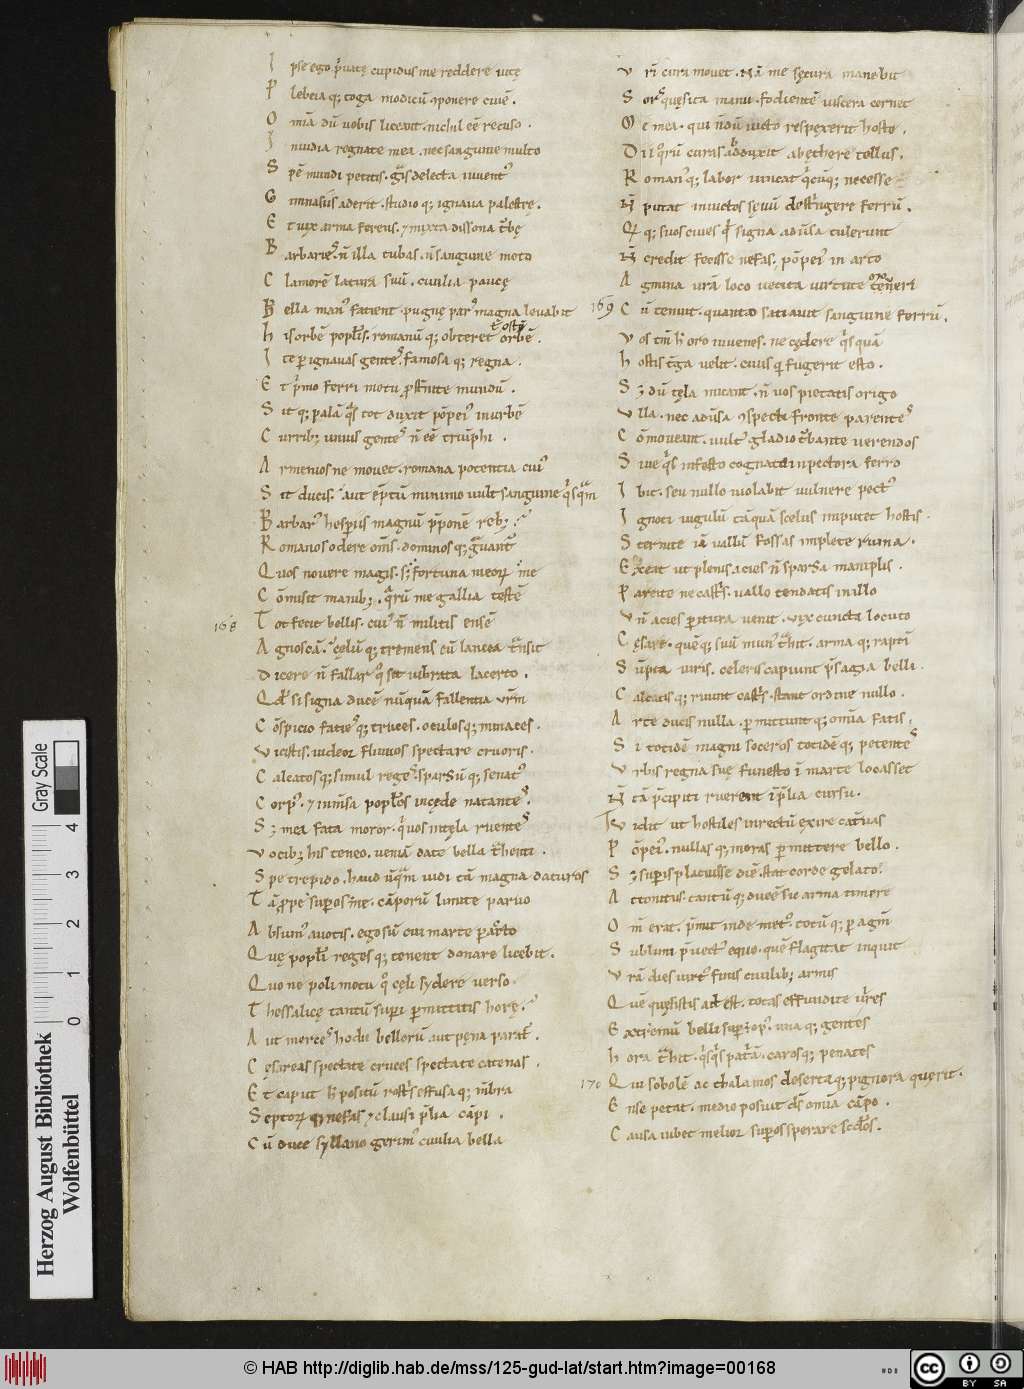 Ipse ego p̍uatę cupidus me reddere uitę
Plebeia q; toga modicū 9ponere ciuē.
Omīa dū uobis liceant. nichil eē recuso.
Inuidia regnate mea. nec sanguine multo
Spē mundi petitis. gͣis delecta iuuent᷒
Gimnasiis aderit. studio q; ignaua palestrę.
Et uix arma ferens. ⁊ mixta dissona t̄bę
Barbaries. n̄ illa tubas. n̄ sanguine moto
Clamorē latura suū. ciuilia paucę
Bella man᷒ facient. pugnę pars magna leuabit
his orbē popl̄is. romanū q; obteret t̄ hostē orbē.
Ite ꝑ ignauas gentes. famosa q; regna.
Et p̍mo ferri motu ꝓsternite mundū.
Sit q; palā qͣs tot duxit pōpei᷒ in urbē
Currib; unius gentes n̄ eē triūphi.
Armenios ne mouet. romana potentia cui᷒
Sit ducis. aut ēptū minimo uult sanguine qͥsqͣm
Barbar᷒ hesperiis magnū p̄ponē reb;
Romanos odere om̄s. dominos q; gͣuant᷒
Quos nouere magis. sꝫ fortuna meoꝝ me
Cōmisit manib;. qͣrū me gallia testē
168
Tot fecit bellis. cui᷒ n̄ militis ensē
Agnoscā. cęlū q; tremens cū lancea tͣnsit
Dicere n̄ fallar qͦ sit uibrata lacerto.
Qd̄ si signa ducē nūquā fallentia ur̄m
Cōspicio facies q; truces. oculos q; minaces.
Vicistis. uideor fluuios spectare cruoris.
Calcatos q; simul reges. sparsū q; senat᷒
Corp᷒. ⁊ inm̄sa popl̄os in cęde natantes.
Sꝫ mea fata moror. qͥ uos in tęla ruentes
Vocib; his teneo. ueniā date bella t̄henti.
Spe trepido. haud ūqͣm uidi tā magna daturos
Tā ꝓpe supos m̄. cāporū limite paruo
Absum᷒ a uotis. ego sū cui marte ꝑacto
Quę popl̄i reges q; tenent donare licebit.
Quo ne poli motu qͦ cęli sydere uerso
Thessalicę tantū supi ꝑmittitis horę.
Aut merces hodie bellorū aut pęna parat᷒.
Cęsareas spectate cruces spectate catenas.
Et caput h̄ positū rostͥs effusa q; mēbra
Septoꝝ q; nefas ⁊ clausi p̄lia cāpi.
Cū duce syllano gerim᷒ ciuilia bella
Vr̄i cura mouet. Nā me sęcura manebit
Sors quęsita manu. fodientē uiscera cernet
Me mea. qui n̄dū uicto respexerit hoste.
Di qͦrū curas abduxit ab ęthere tellus.
Roman᷒ q; labor uincat qͥcūq; necesse
N̄ putat in uictos sęuū destͥngere ferrū.
Qͥ q; suos ciues qͥ signa aduͥsa tulerunt
N̄ credit fecisse nefas. pōpei᷒ in arto
Agmina ur̄a loco uetita uirtute moueri
169
Cū tenuit. quanto satiauit sanguine ferrū.
Vos tm̄ h̄ oro iuuenes. ne cędere qͥsquā
hostis t̄ga uelit. ciuis qͥ fugerit esto.
Sꝫ dū tęla micant. n̄ uos pietatis origo
Vlla. nec aduͥsa 9specti fronte parentes
Cōmoueant. uult᷒ gladio t̄bante uerendos
Siue qͥs infesto cognata in pectora ferro
Ibit. seu nullo uiolabit uulnere pect᷒
Ignoti iugulū tāquā scelus imputet hostis.
Sternite iā uallū fossas implete ruina.
Exeat ut plenis acies n̄ sparsa maniplis.
Parcite ne castͥs. uallo tendatis in illo
Vn̄ acies ꝑitura uenit. uix cuncta locuto
Cęsare. quēq; suū mun᷒ tͣhit. arma q; raptī
Sūpta uiris. celeris capiunt p̄sagia belli.
Calcatis q; ruunt castͥs. stant ordine nullo.
Arte ducis nulla. ꝑmittunt q; om̄a fatis.
Si totidē magni soceros totidē q; petentes
Vrbis regna suę funesto ī marte locasset
N̄ tā p̄cipiti ruerent ī p̄lia cursu.
Vidit ut hostiles in rectū exire catͣuas
Pōpei᷒. nullas q; moras ꝑmittere bello.
Sꝫ supis placuisse diē. stat corde gelato
Attonitus. tantū q; ducē sic arma timere
Om̄ erat. p̍mit inde met᷒. totū q; ꝑ agm̄
Sublimi p̄uect᷒ equo. quē flagitat inquit
Vr̄a dies uirt᷒ finis ciuilib; armis
Quē quęsistis adest. totas effundite uires
Extremū belli supest op᷒. una q; gentes
hora tͣhit. qͥsqͥs patͥā. caros q; penates
170
Qui sobolē ac thalamos deserta q; pignora querit.
Ense petat. medio posuit ds̄ omīa cāpo.
Causa iubet melior supos sperare scd̄os.
Herzog August Bibliothek
Wolfenbüttel
0 1 2 3 4 Gray Scale
© HAB http://diglib.hab.de/mss/125-gud-lat/start.htm?image=00168
cc BY SA